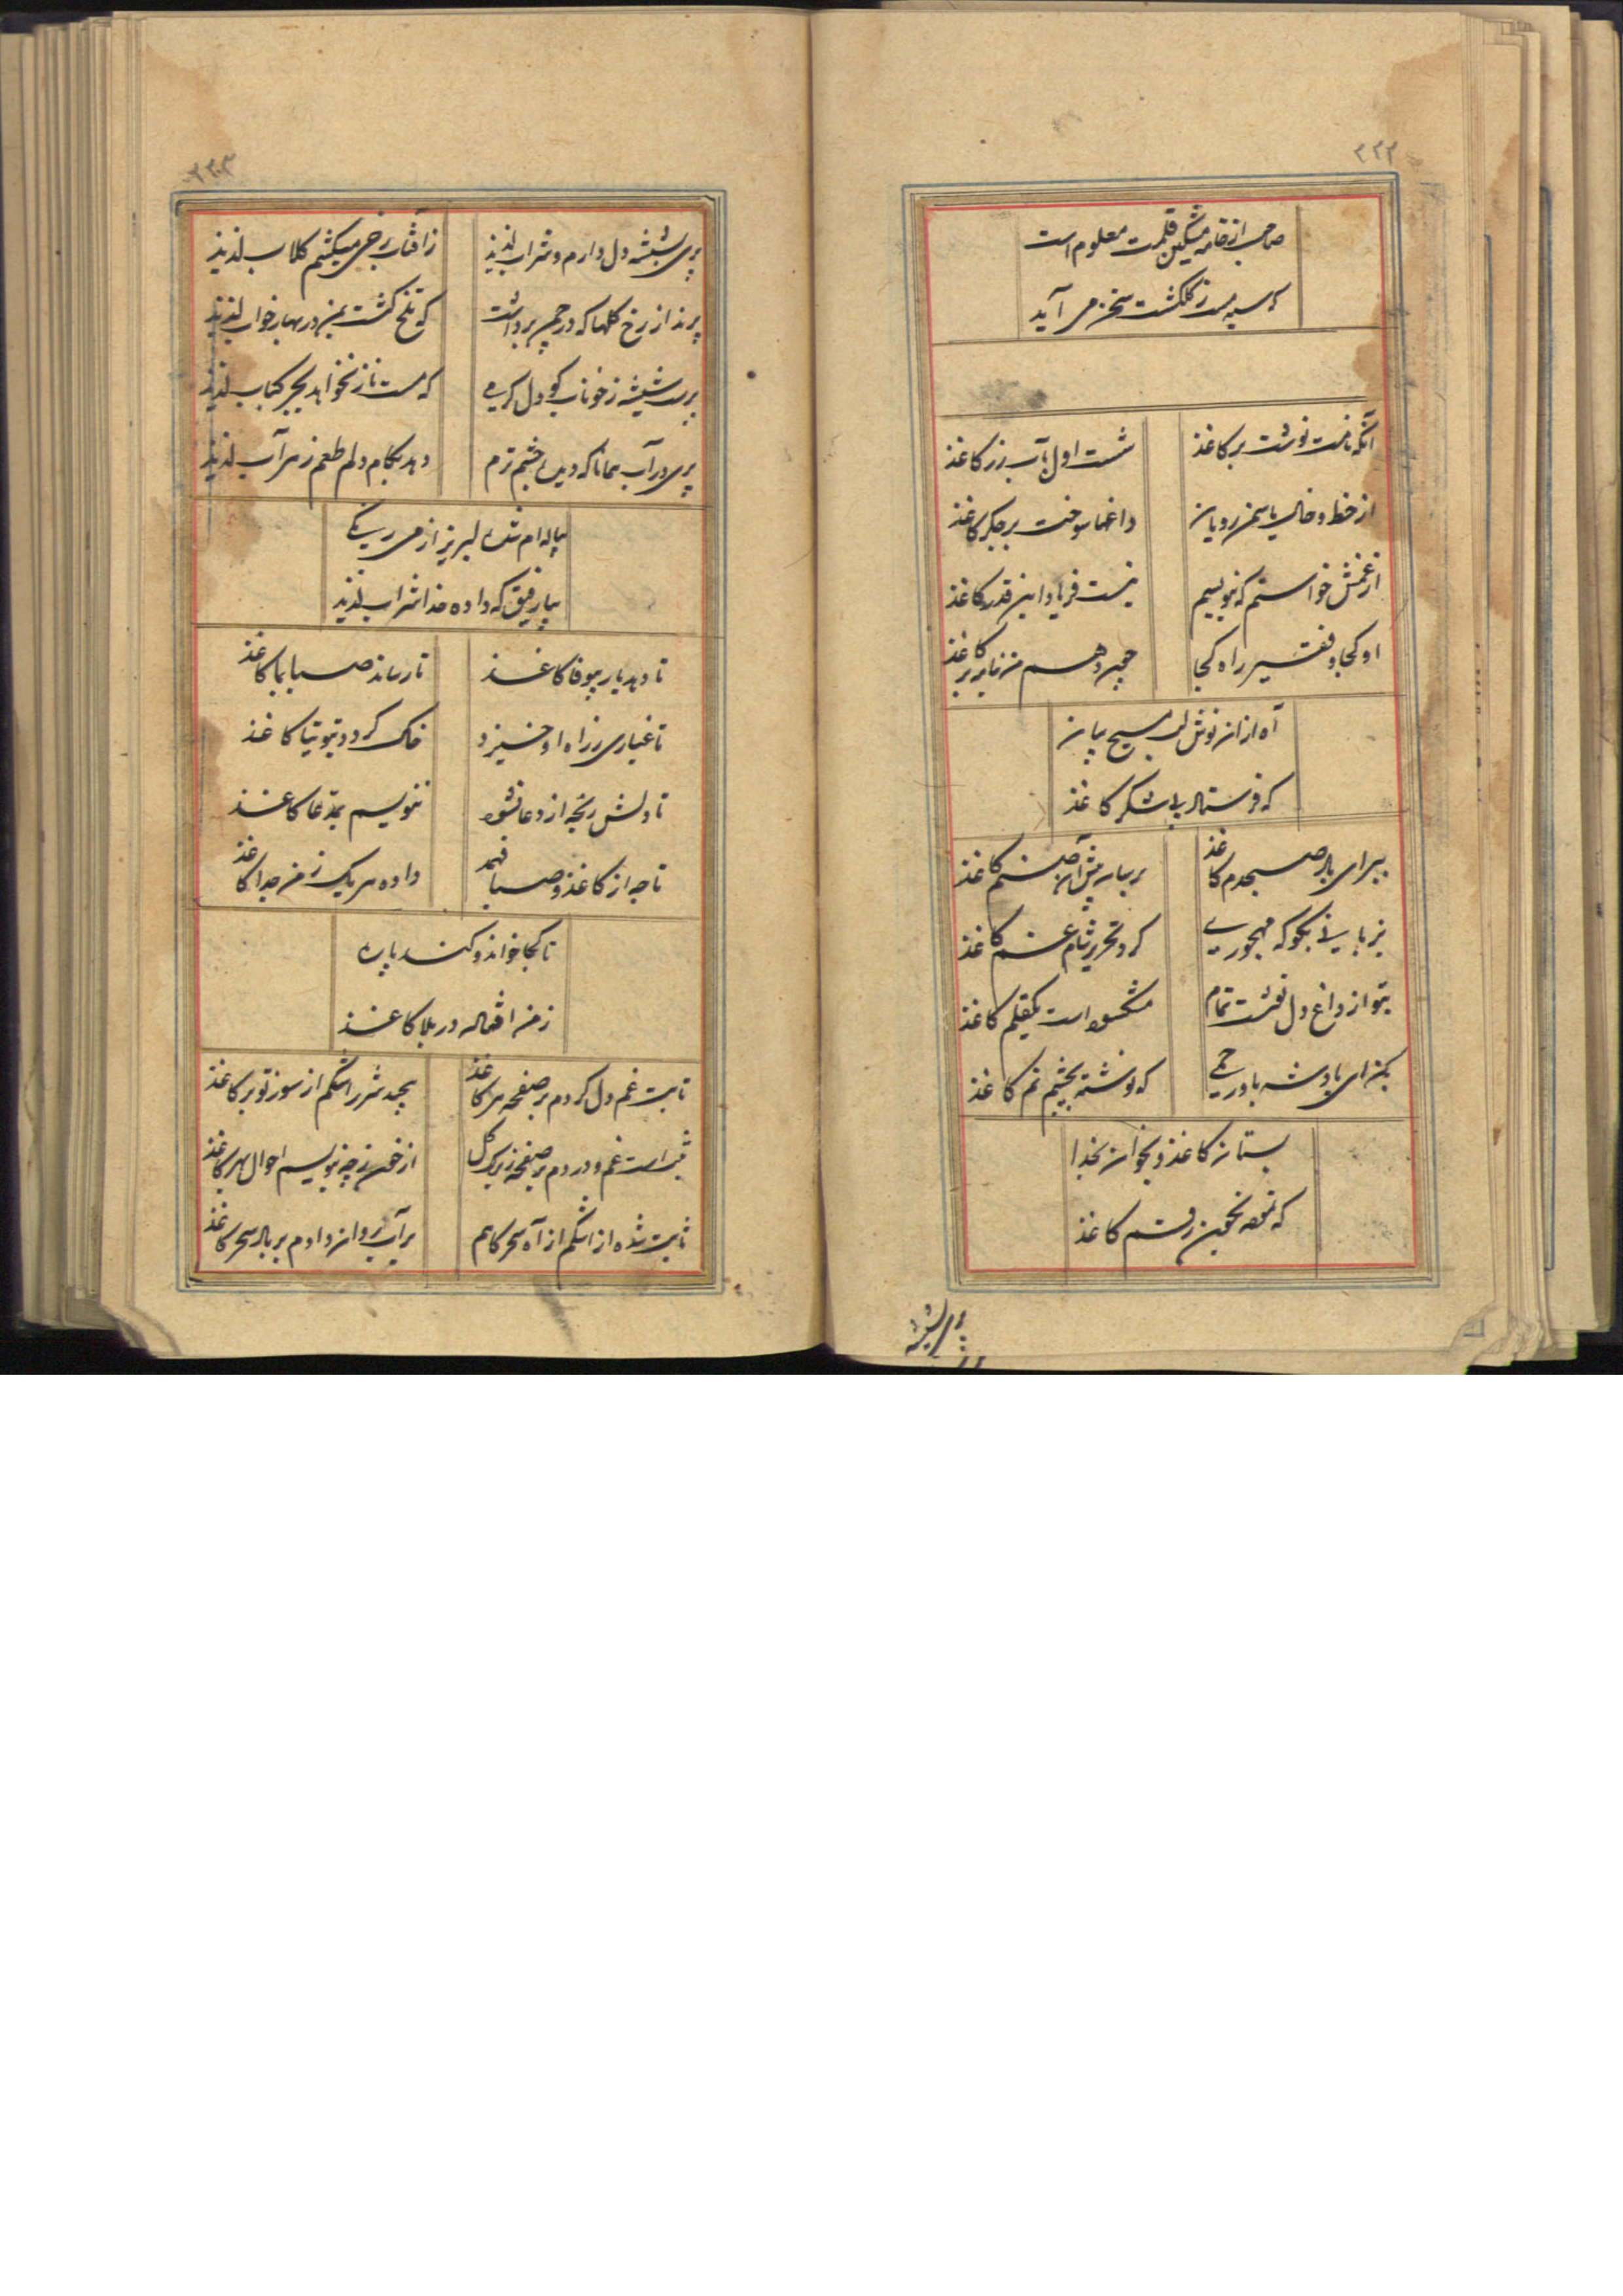 ۲۲۲
صاحب از خامه مشکین قلمت معلوم است
که سیه مست ز گلگشت سخن می آید
آنکه نامت نوشت بر کاغذ
شست اول بآب زر کاغذ
از خط و خال یاسمن رویان
داغها سوخت بر جگر کاغذ
از غمش خواستم که بنویسم
نیست فریاد این قدر کاغذ
او کجا و فقیر راه کجا
من نامه بر کاغذ
آه ازان نوش لب مسیح بیان
که فرستاد بی شکر کاغذ
ببر ای باد صبحدم کاغذ
برسان پیش آن صنم کاغذ
بزبانی بگو که مهجوری
کرد تحریر شام غم کاغذ
بتو از داغ دل نوشت تمام
مشحون است یکقلم کاغذ
بمن ای پادشه باور
که نوشته بچشم نم کاغذ
بستان کاغذ و بخوان بخدا
که بخون رقم کاغذ
پری شیشه
پری شیشه دل دارم و شراب لذیذ
ز آفتاب رخی میکشم گلاب لذیذ
پرند از رخ گلها که در چمن برداشت
که تلخ گشت بمن در بهار خواب لذیذ
پرست شیشه ز خوناب کو دل گرمی
که مست ناز نخواهد بجز کباب لذیذ
پری در آب همانا که دید چشم ترم
دهد بکام دلم طعم زهر آب لذیذ
پیاله ام شده لبریز از می رنگی
بیا رفیق که داده خدا شراب لذیذ
تا دهد یار بیوفا کاغذ
تا رساند صبا بما کاغذ
تا غباری ز راه او خیزد
خاک گردد بتوتیا کاغذ
تا دلش رنجه از دعا نشود
ننویسم بمدعا کاغذ
تا چه از کاغذ و صبا فهمد
داده هر یک ز من جدا کاغذ
تا کجا خواند و کند پاره
ز من افتاده در بلا کاغذ
تا ثبت غم دل کردم بر صفحه هر کاغذ
پیچد شرر اشکم از سوز تو بر کاغذ
ثبت است غم و دردم بر صفحه ز برگ گل
از خون ز چه بنویسم احوال بهر کاغذ
ثابت شده از اشکم از آه سحرگاهم
بر آب روان دادم بر باد سحر کاغذ